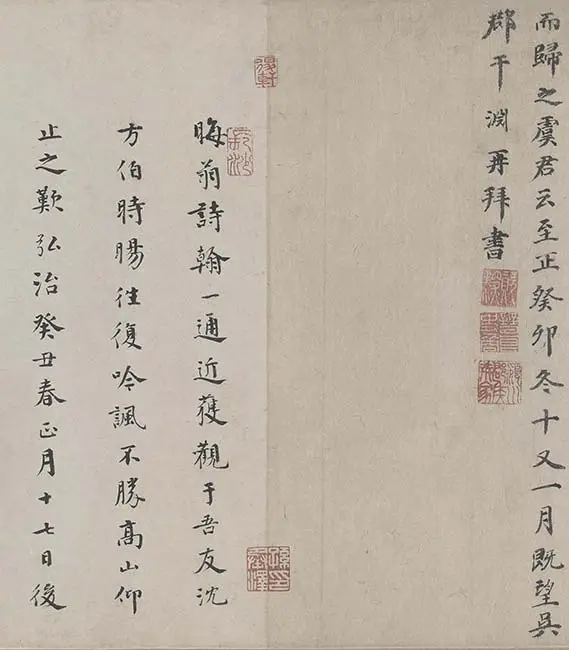 而歸之虞君云至正癸卯冬十又一月既望吳
郡干淵再拜書
晦翁詩翰一通近獲觀于吾友沈
方伯時暘往復吟諷不勝高山仰
止之歎弘治癸丑春正月十七日後